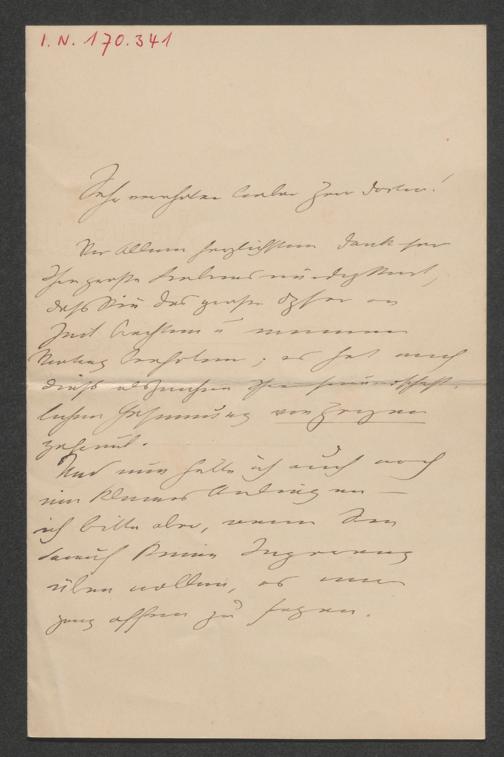 I. N. 170.341
Sehr verehrter lieber Herr Doctor!
Vor Allem herzlichsten Dank für
Ihre große Liebenswürdigkeit,
daß Sie das große Opfer an
Zeit brachten u meinen
Vortrag ; es hat mich
dieß als Zeichen Ihrer freundschaft-
lichen Gesinnung von Herzen
gefreut.
Und nun hätte ich auch noch
ein kleines Anliegen —
ich bitte aber, wenn Sie
darauf keine Ingerenz
üben wollen, es mir
ganz offen zu sagen.